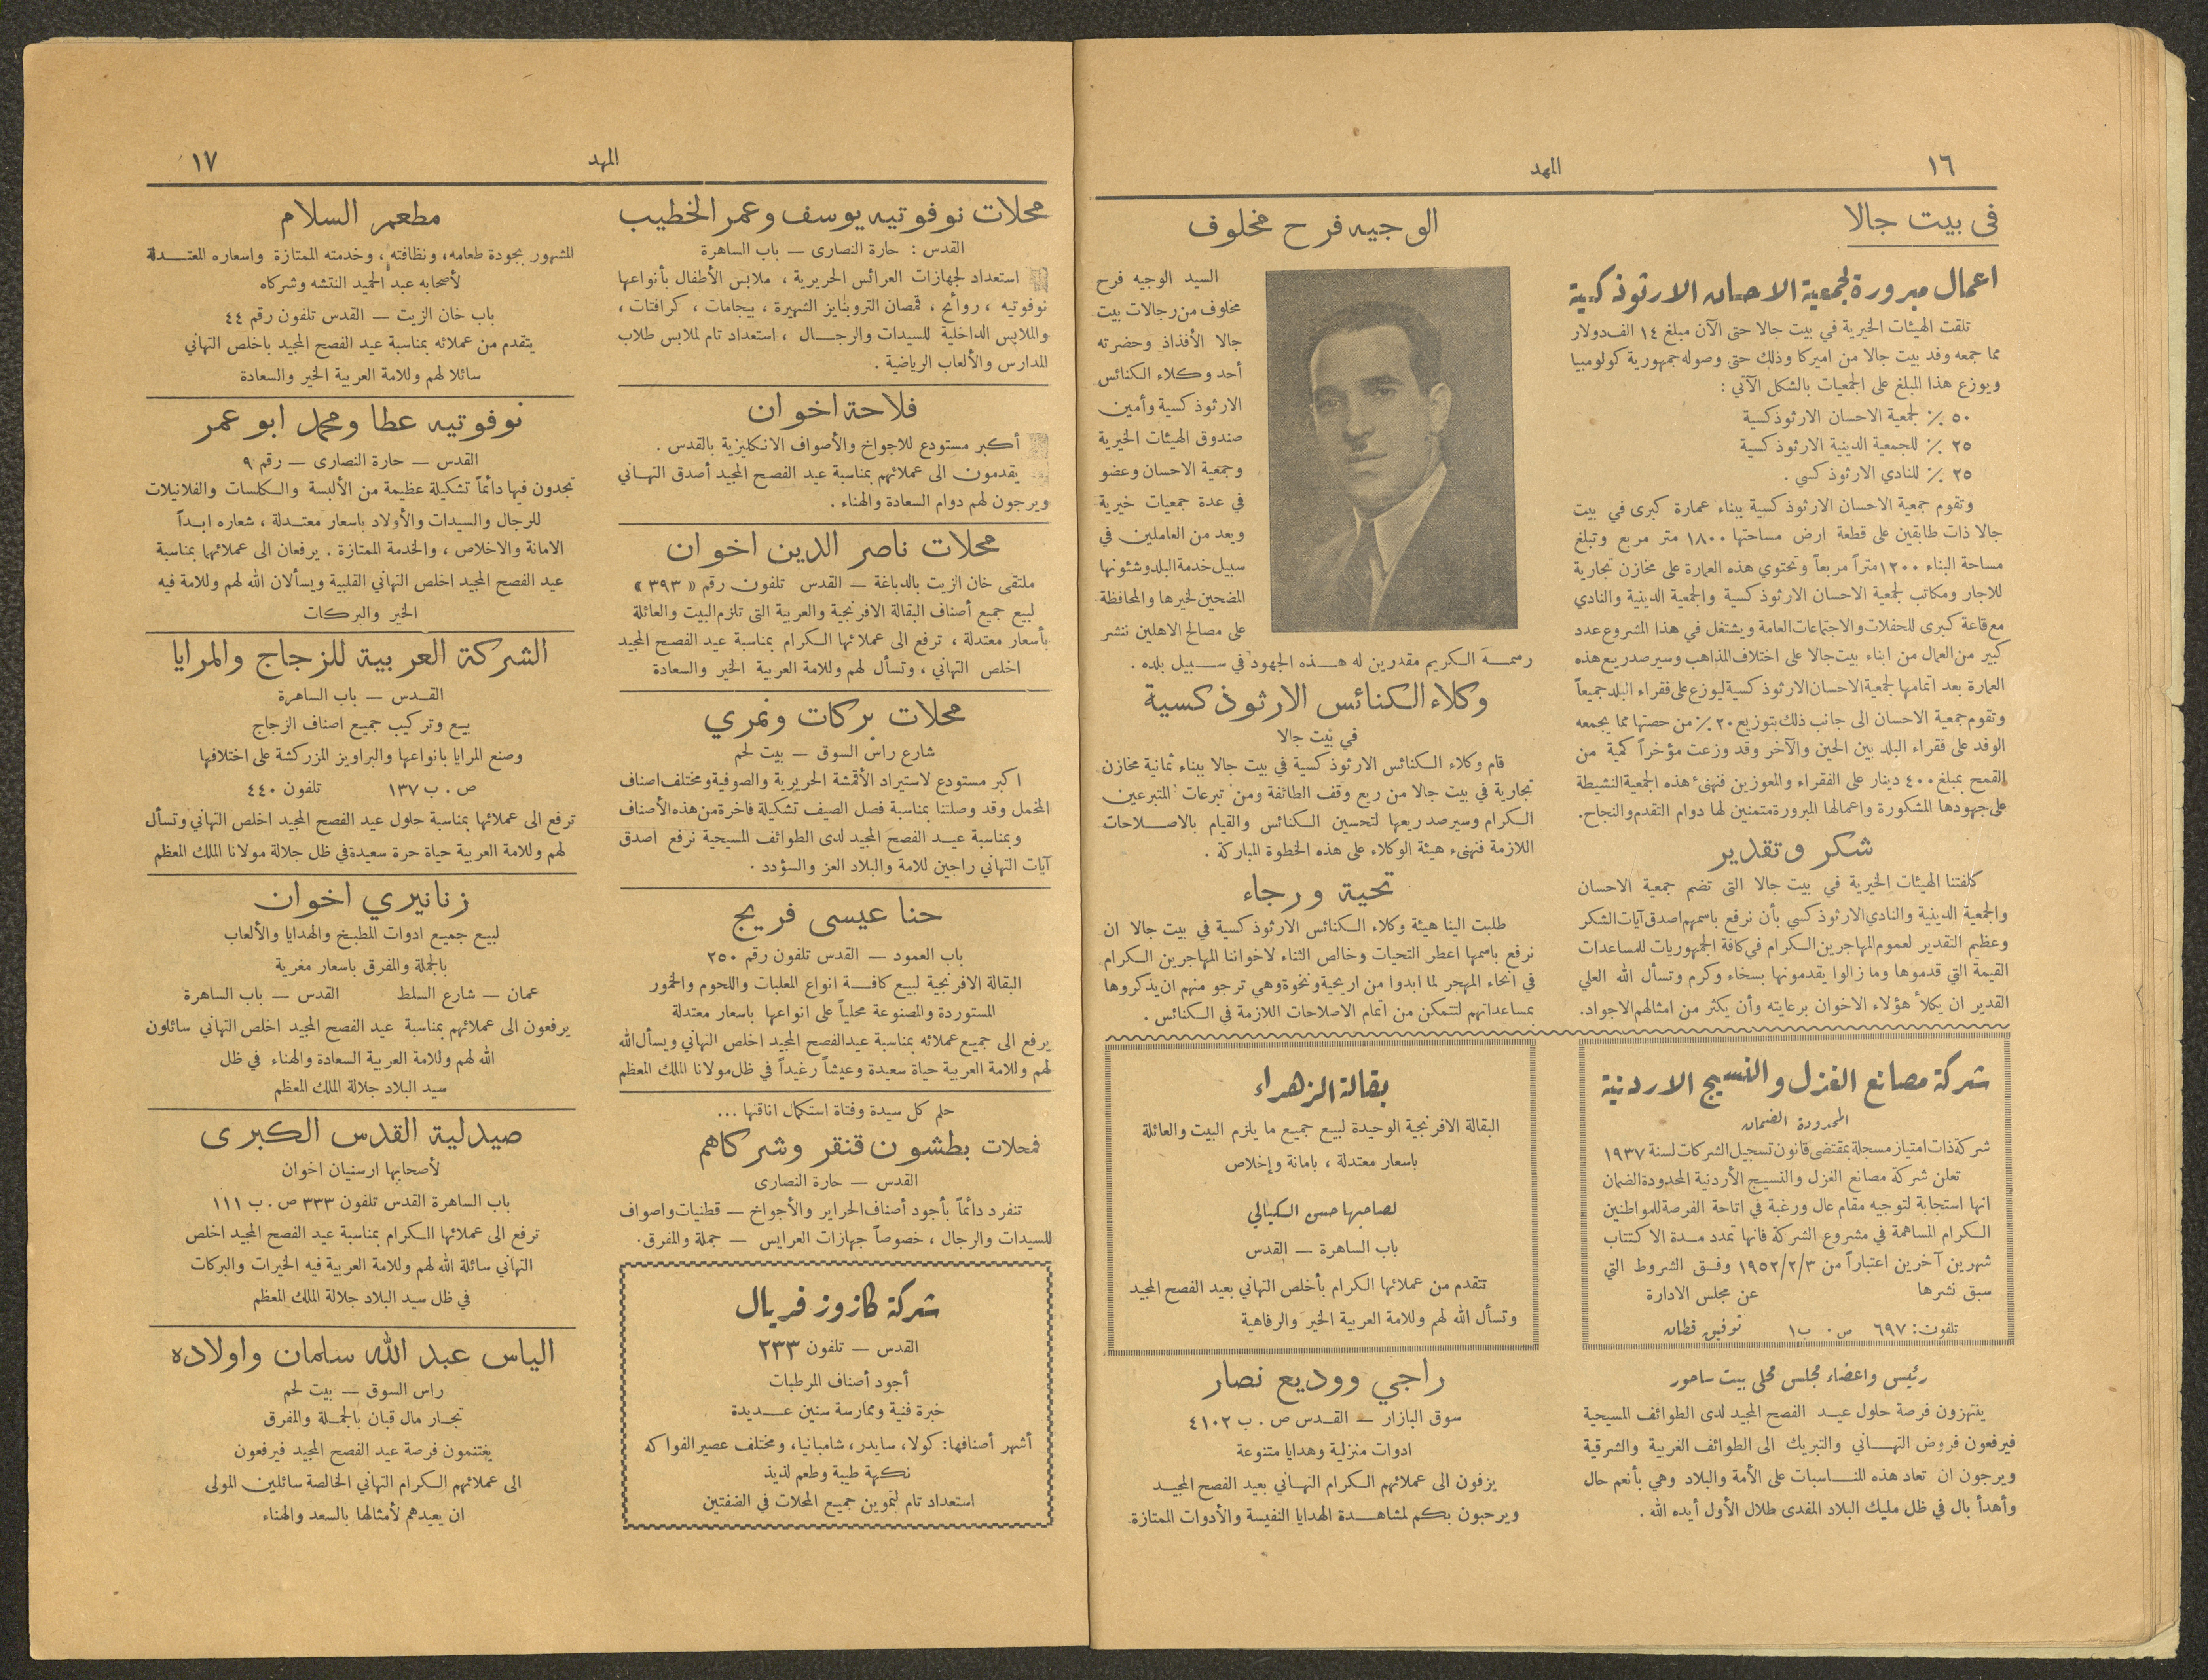 ١٦
المهد
في بيت جالا
اعمال مبرورة لجمعية الاحسان الارثوذكسية
تلقت الهيئات الخيرية في بيت جالا حتى الآن مبلغ ١٤ الف دولار
مما جمعه وفد بيت جالا من اميركا وذلك حتى وصوله جمهورية كولومبيا
ويوزع هذا المبلغ على الجمعيات بالشكل الآتي :
٥٠ ٪ لجمعية الاحسان الارثوذكسية
٢٥ ٪ للجمعية الدينية الارثوذكسية
٢٥ ٪ للنادي الارثوذكسي .
وتقوم جمعية الاحسان الارثوذكسية ببناء عمارة كبرى في بيت
جالا ذات طابقين على قطعة ارض مساحتها ١٨٠٠ متر مربع وتبلغ
مساحة البناء ١٢٠٠ متراً مربعاً وتحتوي هذه العمارة على مخازن تجارية
للاجار ومكاتب لجمعية الاحسان الارثوذكسية والجمعية الدينية والنادي
مع قاعة كبرى للحفلات والاجتماعات العامة ويشتغل في هذا المشروع عدد
كبير من العمال من ابناء بيت جالا على اختلاف المذاهب وسيرصد ريع هذه
العمارة بعد اتمامها لجمعية الاحسان الارثوذكسية ليوزع على فقراء البلد جميعاً
وتقوم جمعية الاحسان الى جانب ذلك بتوزيع ٢٠٪ من حصتها مما يجمعه
الوفد على فقراء البلد بين الحين والآخر وقد وزعت مؤخراً كمية من
القمح بمبلغ ٤٠٠ دينار على الفقراء والمعوزين فنهنئ هذه الجمعية النشيطة
على جهودها المشكورة واعمالها المبرورة متمنين لها دوام التقدم والنجاح.
شكر وتقدير
كلفتنا الهيئات الخيرية في بيت جالا التي تضم جمعية الاحسان
والجمعية الدينية والنادي الارثوذكسي بأن نرفع باسمهم اصدق آيات الشكر
وعظيم التقدير لعموم المهاجرين الكرام في كافة الجمهوريات للمساعدات
القيمة التي قدموها وما زالوا يقدمونها بسخاء وكرم وتسأل الله العلي
القدير ان يكلأ هؤلاء الاخوان برعايته وأن يكثر من امثالهم الاجواد.
شركة مصانع الغزل والنسيج الاردنية
المحدودة الضمان
شركة ذات امتياز مسجلة بمقتضى قانون تسجيل الشركات لسنة ١٩٣٧
تعلن شركة مصانع الغزل والنسيج الأردنية المحدودة الضمان
انها استجابة لتوجيه مقام عال ورغبة في اتاحة الفرصة للمواطنين
الكرام المساهمة في مشروع الشركة فانها تمدد مدة الاكتتاب
شهرين آخرين اعتباراً من ١٩٥٢/٢/٣ وفق الشروط التي
سبق نشرها عن مجلس الادارة
تلفون: ٦٩٧ ص . ب ١ توفيق قطان
رئيس واعضاء مجلس محلي بيت ساحور
ينتهزون فرصة حلول عيد الفصح المجيد لدى الطوائف المسيحية
فيرفعون فروض التهاني والتبريك الى الطوائف الغربية والشرقية
ويرجون ان تعاد هذه المناسبات على الأمة والبلاد وهي بأنعم حال
وأهدأ بال في ظل مليك البلاد المفدى طلال الأول أيده الله .
الوجيه فرح مخلوف
السيد الوجيه فرح
مخلوف من رجالات بيت
جالا الأفذاذ وحضرته
أحد وكلاء الكنائس
الارثوذكسية وأمين
صندوق الهيئات الخيرية
وجمعية الاحسان وعضو
في عدة جمعيات خيرية
ويعد من العاملين في
سبيل خدمة البلد وشئونها
المضحين لخيرها والمحافظة
على مصالح الاهلين ننشر
رسمه الكريم مقدرين له هذه الجهود في سبيل بلده .
وكلاء الكنائس الارثوذكسية
في بيت جالا
قام وكلاء الكنائس الارثوذكسية في بيت جالا ببناء ثمانية مخازن
تجارية في بيت جالا من ريع وقف الطائفة ومن تبرعات المتبرعين
الكرام وسيرصد ريعها لتحسين الكنائس والقيام بالاصلاحات
اللازمة فنهنىء هيئة الوكلاء على هذه الخطوة المباركة .
تحية ورجاء
طلبت الينا هيئة وكلاء الكنائس الارثوذكسية في بيت جالا ان
نرفع باسمها اعطر التحيات وخالص الثناء لاخواننا المهاجرين الكرام
في انحاء المهجر لما ابدوا من اريحية ونخوة وهي ترجو منهم ان يذكروها
بمساعداتهم لتتمكن من اتمام الاصلاحات اللازمة في الكنائس .
بقالة الزهراء
البقالة الافرنجية الوحيدة لبيع جميع ما يلزم البيت والعائلة
باسعار معتدلة ، بامانة وإخلاص
لصاحبها حسن الكيالي
باب الساهرة — القدس
تتقدم من عملائها الكرام بأخلص التهاني بعيد الفصح المجيد
وتسأل الله لهم وللامة العربية الخير والرفاهية
راجي ووديع نصار
سوق البازار — القدس ص . ب ٤١٠٢
ادوات منزلية وهدايا متنوعة
يزفون الى عملائهم الكرام التهاني بعيد الفصح المجيد
ويرحبون بكم لمشاهدة الهدايا النفيسة والأدوات الممتازة.
المهد
١٧
محلات نوفوتيه يوسف وعمر الخطيب
القدس : حارة النصارى — باب الساهرة
استعداد لجهازات العرائس الحريرية ، ملابس الأطفال بأنواعها
نوفوتيه ، روائح ، قمصان التروبنايز الشهيرة ، بيجامات ، كرافتات ،
والملابس الداخلية للسيدات والرجال ، استعداد تام لملابس طلاب
المدارس والألعاب الرياضية .
فلاحة اخوان
أكبر مستودع للاجواخ والأصواف الانكليزية بالقدس .
يقدمون الى عملائهم بمناسبة عيد الفصح المجيد أصدق التهاني
ويرجون لهم دوام السعادة والهناء .
محلات ناصر الدين اخوان
ملتقى خان الزيت بالدباغة — القدس تلفون رقم « ٣٩٣ »
لبيع جميع أصناف البقالة الافرنجية والعربية التى تلزم البيت والعائلة
بأسعار معتدلة ، ترفع الى عملائها الكرام بمناسبة عيد الفصح المجيد
اخلص التهاني ، وتسأل لهم وللامة العربية الخير والسعادة
محلات بركات ونمري
شارع راس السوق — بيت لحم
اكبر مستودع لاستيراد الأقمشة الحريرية والصوفية ومختلف اصناف
المخمل وقد وصلتنا بمناسبة فصل الصيف تشكيلة فاخرة من هذه الأصناف
وبمناسبة عيد الفصح المجيد لدى الطوائف المسيحية نرفع اصدق
آيات التهاني راجين للامة والبلاد العز والسؤدد .
حنا عيسى فريج
باب العمود — القدس تلفون رقم ٢٥٠
البقالة الافرنجية لبيع كافة انواع المعلبات واللحوم والخمور
المستوردة والمصنوعة محلياً على انواعها باسعار معتدلة
يرفع الى جميع عملائه بمناسبة عيد الفصح المجيد اخلص التهاني ويسأل الله
لهم وللامة العربية حياة سعيدة وعيشاً رغيداً في ظل مولانا الملك المعظم
حلم كل سيدة وفتاة استكمال اناقتها ...
فمحلات بطشون قنقر وشركاهم
القدس — حارة النصارى
تنفرد دائماً بأجود أصناف الحراير والأجواخ — قطنيات واصواف
للسيدات والرجال ، خصوصاً جهازات العرايس — جملة والمفرق.
شركة كازوز فريال
القدس — تلفون ٢٣٣
أجود أصناف المرطبات
خبرة فنية وممارسة سنين عديدة
أشهر أصنافها: كولا، سايدر، شامبانيا، ومختلف عصير الفواكه
نكهة طيبة وطعم لذيذ
استعداد تام لتموين جميع المحلات في الضفتين
مطعم السلام
المشهور بجودة طعامه، ونظافته، وخدمته الممتازة واسعاره المعتدلة
لأصحابه عبد الحميد النتشه وشركاه
باب خان الزيت — القدس تلفون رقم ٤٤
يتقدم من عملائه بمناسبة عيد الفصح المجيد باخلص التهاني
سائلا لهم وللامة العربية الخير والسعادة
نوفوتيه عطا ومحمد ابو عمر
القدس — حارة النصارى — رقم ٩
تجدون فيها دائماً تشكيلة عظيمة من الألبسة والكلسات والفلانيلات
للرجال والسيدات والأولاد باسعار معتدلة ، شعاره ابداً
الامانة والاخلاص ، والخدمة الممتازة . يرفعان الى عملائهما بمناسبة
عيد الفصح المجيد اخلص التهاني القلبية ويسألان الله لهم وللامة فيه
الخير والبركات
الشركة العربية للزجاج والمرايا
القدس — باب الساهرة
بيع وتركيب جميع اصناف الزجاج
وصنع المرايا بانواعها والبراويز المزركشة على اختلافها
ص . ب ١٣٧ تلفون ٤٤٠
ترفع الى عملائها بمناسبة حلول عيد الفصح المجيد اخلص التهاني وتسأل
لهم وللامة العربية حياة حرة سعيدة في ظل جلالة مولانا الملك المعظم
زنانيري اخوان
لبيع جميع ادوات المطبخ والهدايا والألعاب
بالجملة والمفرق باسعار مغرية
عمان — شارع السلط القدس — باب الساهرة
يرفعون الى عملائهم بمناسبة عيد الفصح المجيد اخلص التهاني سائلون
الله لهم وللامة العربية السعادة والهناء في ظل
سيد البلاد جلالة الملك المعظم
صيدلية القدس الكبرى
لأصحابها ارسنيان اخوان
باب الساهرة القدس تلفون ٣٣٣ ص . ب ١١١
ترفع الى عملائها الكرام بمناسبة عيد الفصح المجيد اخلص
التهاني سائلة الله لهم وللامة العربية فيه الخيرات والبركات
في ظل سيد البلاد جلالة الملك المعظم
الياس عبد الله سلمان واولاده
راس السوق — بيت لحم
تجار مال قبان بالجملة والمفرق
يغتنمون فرصة عيد الفصح المجيد فيرفعون
الى عملائهم الكرام التهاني الخالصة سائلين المولى
ان يعيدهم لأمثالها بالسعد والهناء